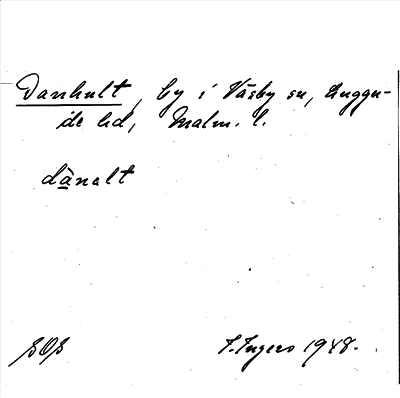 Danhult, by i Väsby sn, Luggu-
de hd, Malm. l.
dànalt
SOS
I. Ingers 1948.